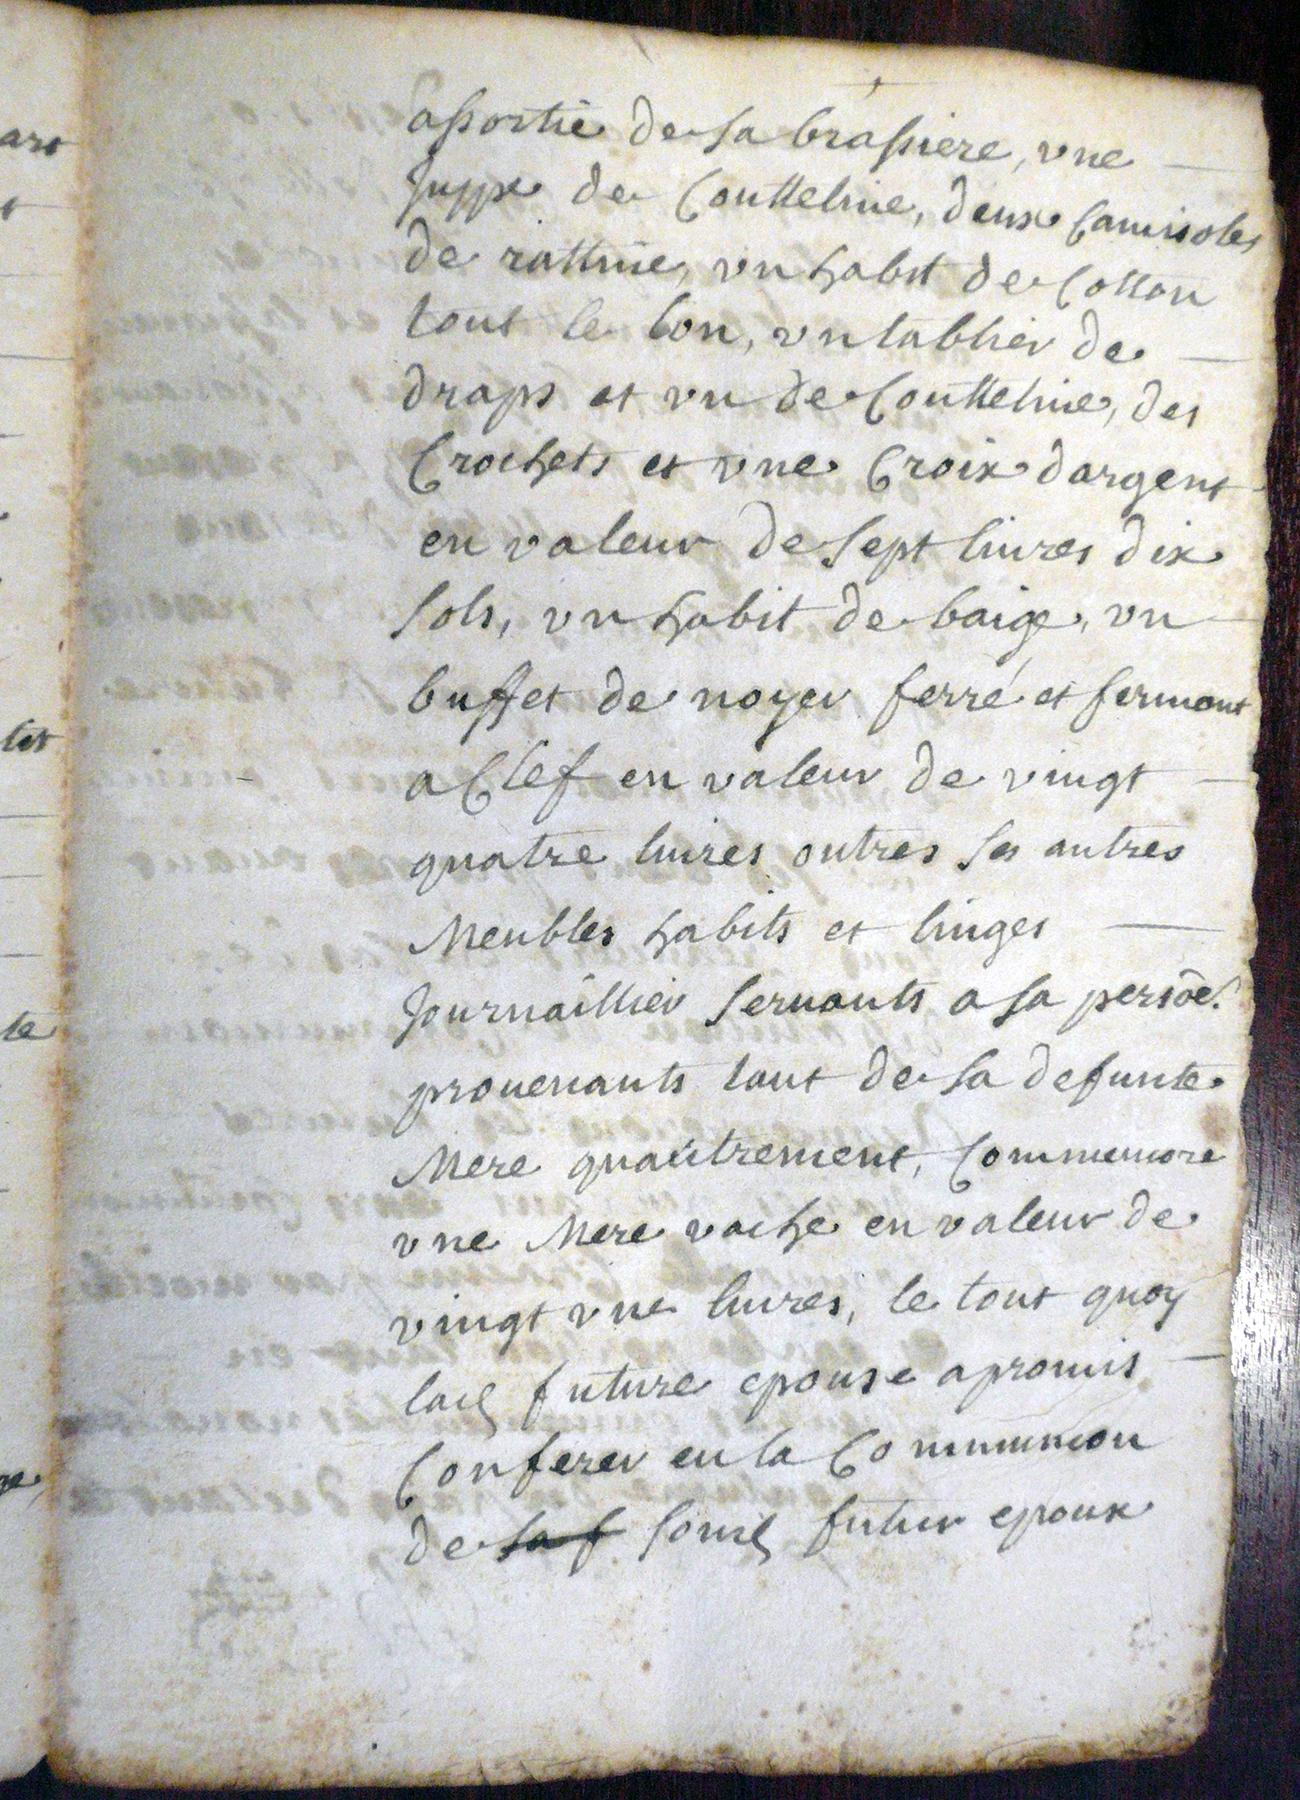 art
t
lit
te
assortie de sa brassiere, vne
Juppe de Coutteline, deux Camisoles
de rattine, vn habit de Cotton
tout le bon, vn tablier de
draps et vn de Coutteline, des
Crochets et vne Croix dargent
en valeur de sept liures dix
sols, vn habit de baige, vn
buffet de noyer ferré et fermant
a Clef en valeur de vingt
quatre liures outres ses autres
Meubles habits et linges
Journaillier seruants a sa persõe.
prouenants tant de sa defunte
Mere quautrement, Comme encore
vne Mere vache en valeur de
vingt vne liures, le tout quoy
lad future epouse a promis
Conferer en la Communion
de sa f soud futur epoux